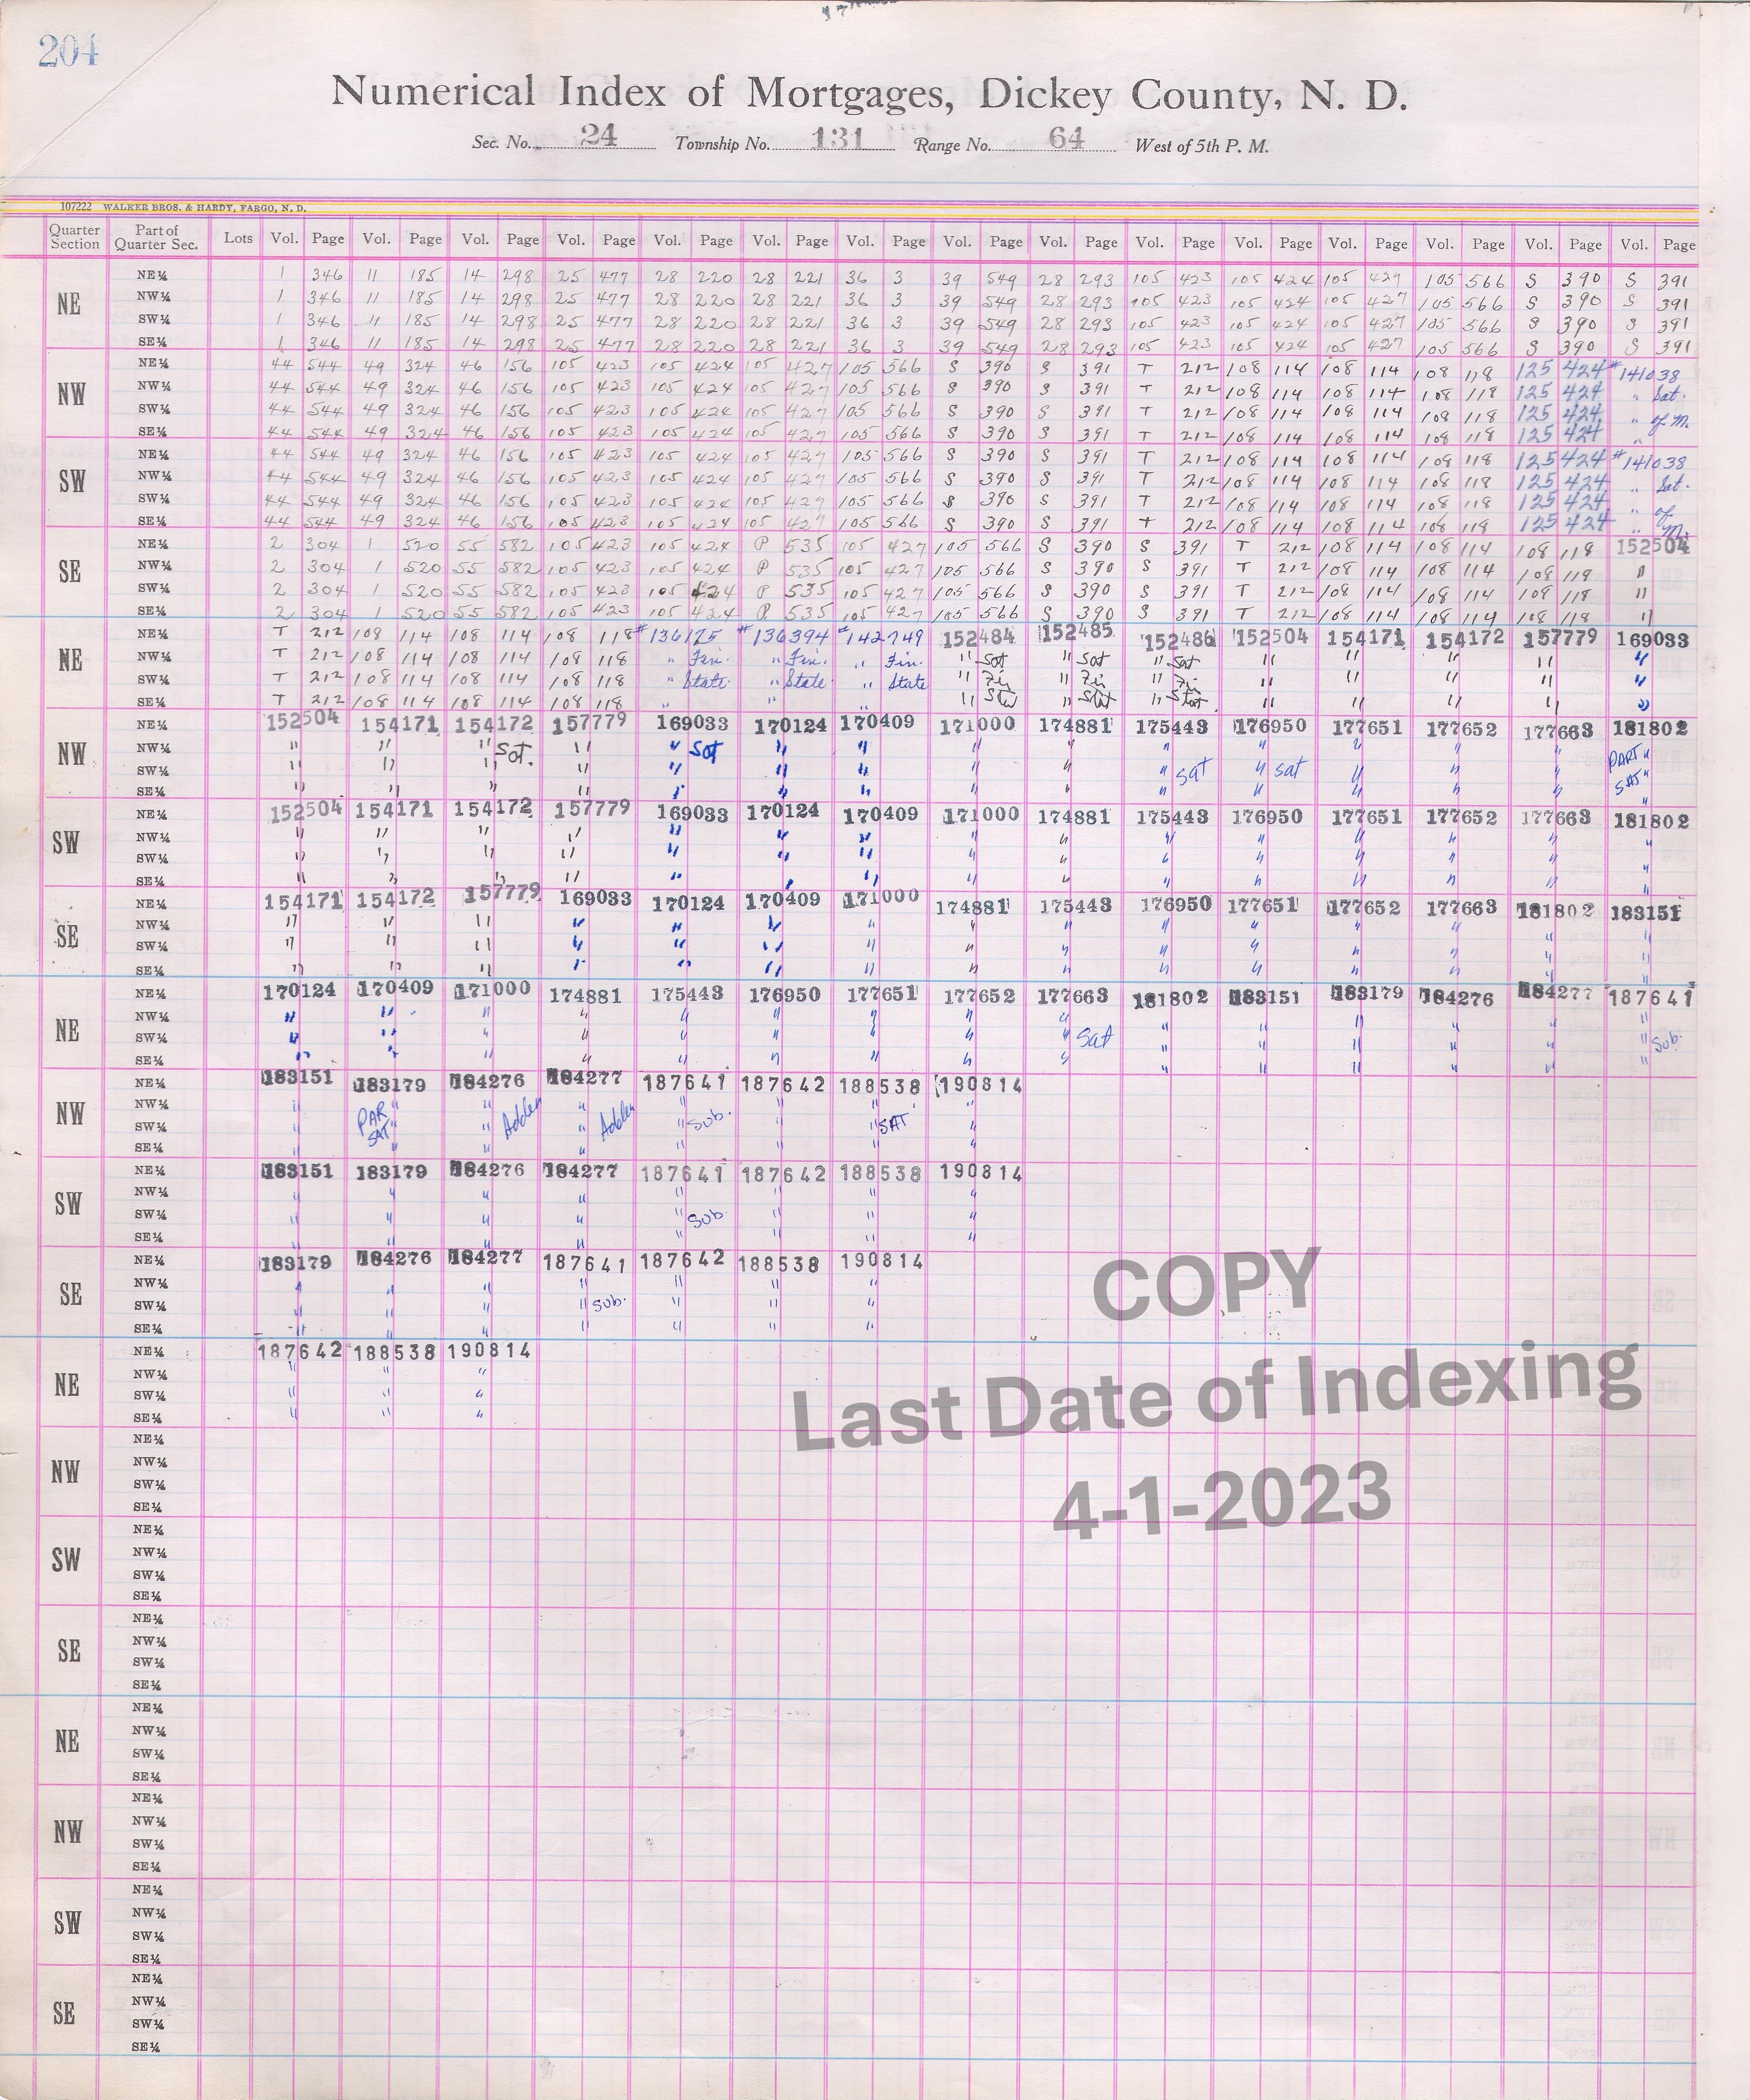 204
Numerical Index of Mortgages, Dickey County, N. D.
Sec. No. 24 Township No. 131 Range No. 64 West of 5th P. M.
107222 WALKER BROS. & HARDY, FARGO, N. D.
Quarter Section Part of Quarter Sec. Lots Vol. Page Vol. Page Vol. Page Vol. Page Vol. Page Vol. Page Vol. Page Vol. Page Vol. Page Vol. Page Vol. Page Vol. Page Vol. Page Vol. Page Vol. Page
NE
NE¼ 1 346 11 185 14 298 25 477 28 220 28 221 36 3 39 549 28 293 105 423 105 424 105 427 105 566 S 390 S 391
NW¼ 1 346 11 185 14 298 25 477 28 220 28 221 36 3 39 549 28 293 105 423 105 424 105 427 105 566 S 390 S 391
SW¼ 1 346 11 185 14 298 25 477 28 220 28 221 36 3 39 549 28 293 105 423 105 424 105 427 105 566 S 390 S 391
SE¼ 1 346 11 185 14 298 25 477 28 220 28 221 36 3 39 549 28 293 105 423 105 424 105 427 105 566 S 390 S 391
NW
NE¼ 44 544 49 324 46 156 105 423 105 424 105 427 105 566 S 390 S 391 T 212 108 114 108 114 108 118 125 424 #141038
NW¼ 44 544 49 324 46 156 105 423 105 424 105 427 105 566 S 390 S 391 T 212 108 114 108 114 108 118 125 424 " Sat.
SW¼ 44 544 49 324 46 156 105 423 105 424 105 427 105 566 S 390 S 391 T 212 108 114 108 114 108 118 125 424 " of M.
SE¼ 44 544 49 324 46 156 105 423 105 424 105 427 105 566 S 390 S 391 T 212 108 114 108 114 108 118 125 424 "
SW
NE¼ 44 544 49 324 46 156 105 423 105 424 105 427 105 566 S 390 S 391 T 212 108 114 108 114 108 118 125 424 #141038
NW¼ 44 544 49 324 46 156 105 423 105 424 105 427 105 566 S 390 S 391 T 212 108 114 108 114 108 118 125 424 " Sat.
SW¼ 44 544 49 324 46 156 105 423 105 424 105 427 105 566 S 390 S 391 T 212 108 114 108 114 108 118 125 424 " of
SE¼ 44 544 49 324 46 156 105 423 105 424 105 427 105 566 S 390 S 391 T 212 108 114 108 114 108 118 125 424 " M.
SE
NE¼ 2 304 1 520 55 582 105 423 105 424 P 535 105 427 105 566 S 390 S 391 T 212 108 114 108 114 108 118 152504
NW¼ 2 304 1 520 55 582 105 423 105 424 P 535 105 427 105 566 S 390 S 391 T 212 108 114 108 114 108 118 "
SW¼ 2 304 1 520 55 582 105 423 105 424 P 535 105 427 105 566 S 390 S 391 T 212 108 114 108 114 108 118 "
SE¼ 2 304 1 520 55 582 105 423 105 424 P 535 105 427 105 566 S 390 S 391 T 212 108 114 108 114 108 118 "
NE
NE¼ T 212 108 114 108 114 108 118 #136175 #136394 #142749 152484 152485 152486 152504 154171 154172 157779 169033
NW¼ T 212 108 114 108 114 108 118 " Fin. " Fin. " Fin. " Sat " Sat " Sat " " " " "
SW¼ T 212 108 114 108 114 108 118 " State " State " State " Fin " Fin " Fin " " " " "
SE¼ T 212 108 114 108 114 108 118 " " " " Stat " Stat " Stat " " " " "
NW
NE¼ 152504 154171 154172 157779 169033 170124 170409 171000 174881 175443 176950 177651 177652 177663 181802
NW¼ " " " Sat. " " Sat " " " " " " " " " PART "
SW¼ " " " " " " " " " " Sat " sat " " " SAT "
SE¼ " " " " " " " " " " " " " " "
SW
NE¼ 152504 154171 154172 157779 169033 170124 170409 171000 174881 175443 176950 177651 177652 177663 181802
NW¼ " " " " " " " " " " " " " " "
SW¼ " " " " " " " " " " " " " " "
SE¼ " " " " " " " " " " " " " " "
SE
NE¼ 154171 154172 157779 169033 170124 170409 171000 174881 175443 176950 177651 177652 177663 181802 183151
NW¼ " " " " " " " " " " " " " " "
SW¼ " " " " " " " " " " " " " " "
SE¼ " " " " " " " " " " " " " " "
NE
NE¼ 170124 170409 171000 174881 175443 176950 177651 177652 177663 181802 183151 183179 184276 184277 187641
NW¼ " " " " " " " " " " " " " " "
SW¼ " " " " " " " " " Sat " " " " " " Sub.
SE¼ " " " " " " " " " " " " " " "
NW
NE¼ 183151 183179 184276 184277 187641 187642 188538 190814
NW¼ " PAR " " Adden " Adden " " " "
SW¼ " SAT " " " " Sub. " " SAT "
SE¼ " " " " " " " "
SW
NE¼ 183151 183179 184276 184277 187641 187642 188538 190814
NW¼ " " " " " " " "
SW¼ " " " " " Sub. " " "
SE¼ " " " " " " " "
SE
NE¼ 183179 184276 184277 187641 187642 188538 190814
NW¼ " " " " " " "
SW¼ " " " " Sub. " " "
SE¼ " " " " " " "
COPY
NE
NE¼ 187642 188538 190814
NW¼ " " "
SW¼ " " "
SE¼ " " "
Last Date of Indexing
NW
NE¼
NW¼
SW¼
SE¼
4-1-2023
SW
NE¼
NW¼
SW¼
SE¼
SE
NE¼
NW¼
SW¼
SE¼
NE
NE¼
NW¼
SW¼
SE¼
NW
NE¼
NW¼
SW¼
SE¼
SW
NE¼
NW¼
SW¼
SE¼
SE
NE¼
NW¼
SW¼
SE¼